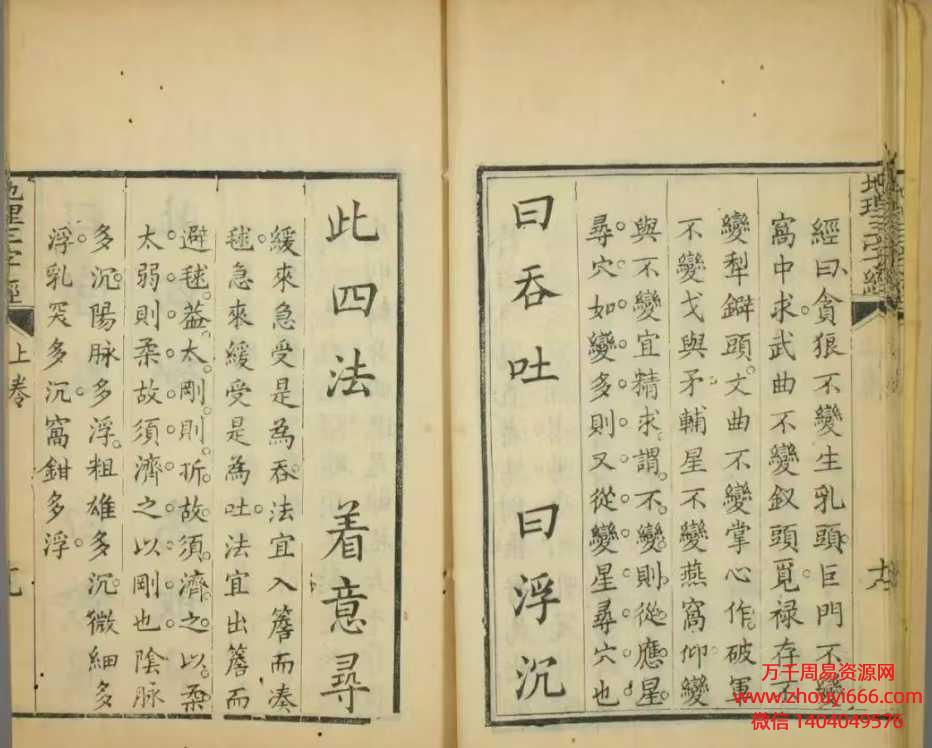 地理三字經
經曰貪狼不變生乳頭巨門不變
窩中求武曲不變釵頭覓祿存不
變犁鐴頭文曲不變掌心作破軍
不變戈與矛輔星不變燕窩仰變
與不變宜精求謂不變則從應星
尋穴如變多則又從變星尋穴也
曰吞吐 曰浮沉
此四法 着意尋
緩來急受是為吞法宜入簷而湊
毬急來緩受是為吐法宜出簷而
避毬葢太剛則折故須濟之以柔
太弱則柔故須濟之以剛也陰脉
多沉陽脉多浮粗雄多沉微細多
浮乳突多沉窩鉗多浮
地理三字經
上卷
万千周易资源网
www.zhouyi666.com
微信 1404049576